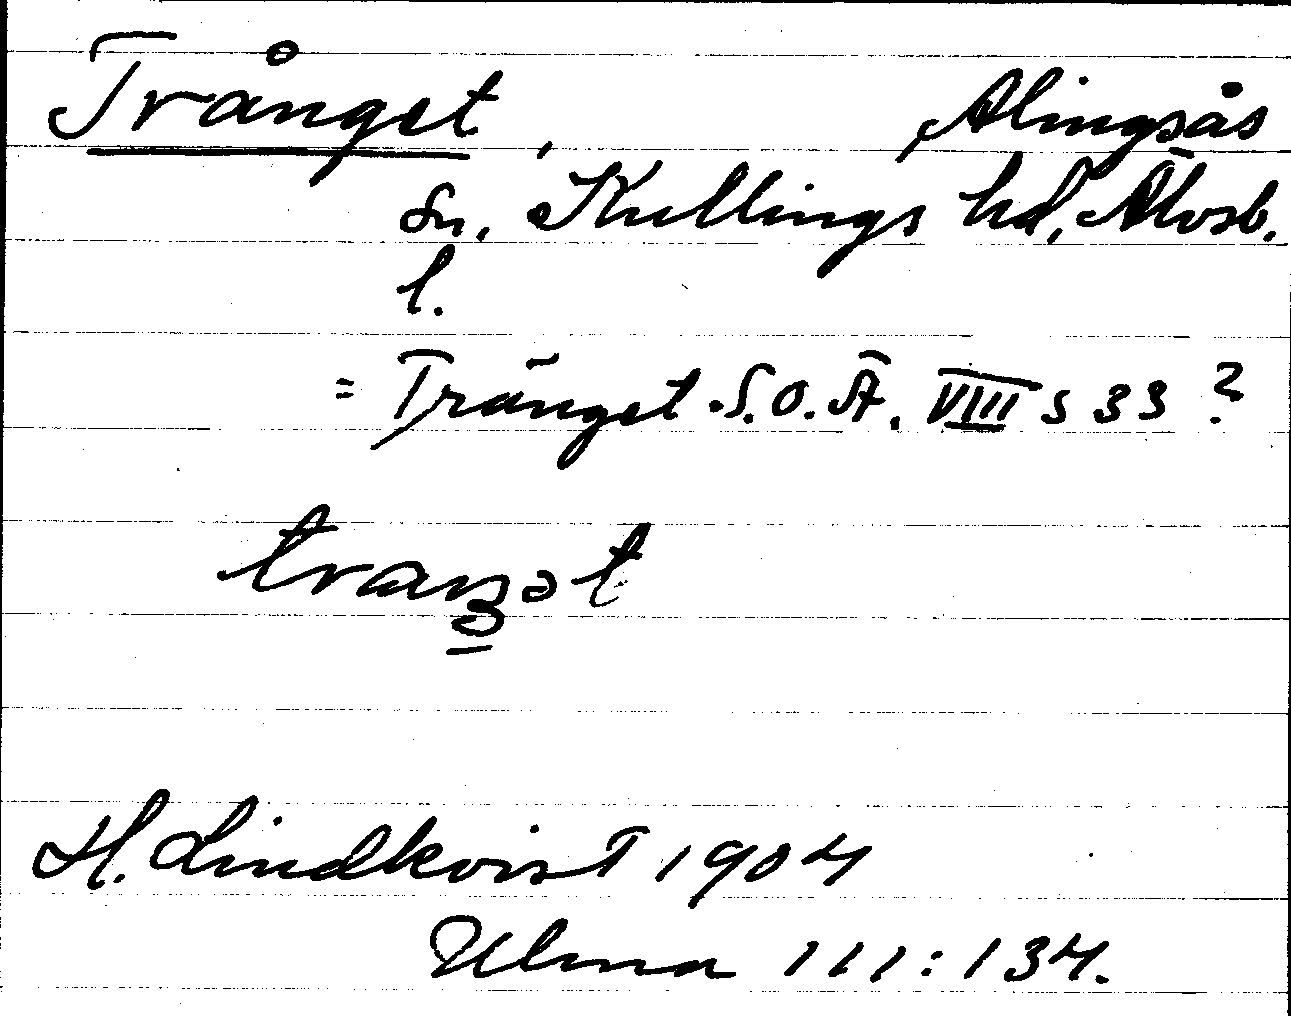 Trånget, Alingsås
sn, Kullings hd, Älvsb.
l.
= Tränget. S.O.Ä. VIII s 33 ?
H. Lindkvist 1904
Ulma 111:134.